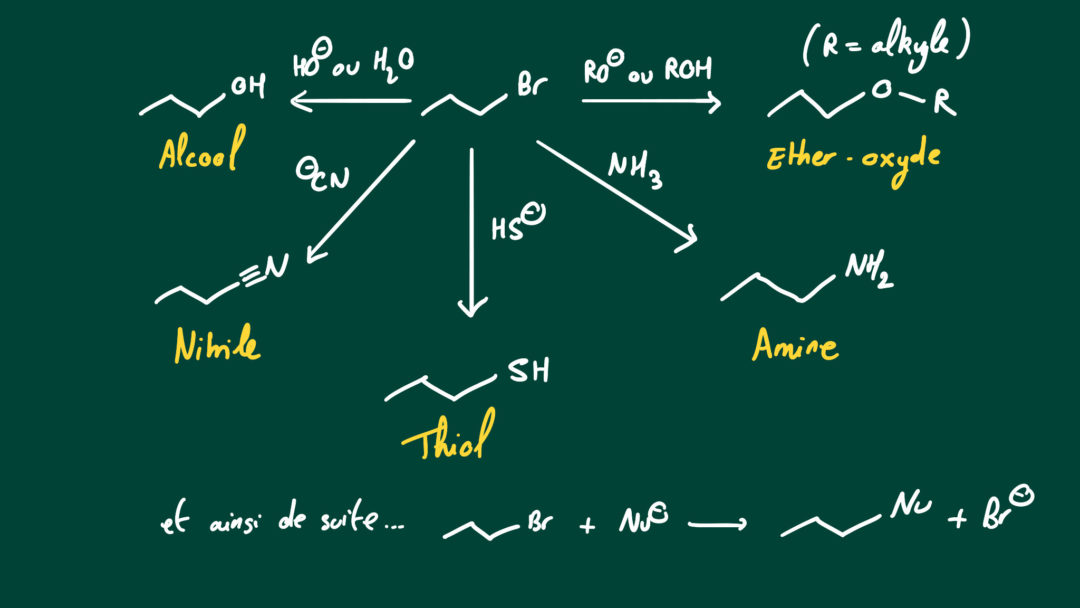 (R = alkyle)
HO⊖ ou H₂O
RO⊖ ou ROH
OH
Br
O-R
Alcool
Ether-oxyde
⊖CN
HS⊖
NH₃
≡N
NH₂
Nitrile
Amine
SH
Thiol
et ainsi de suite... Br + Nu⊖ → Nu + Br⊖